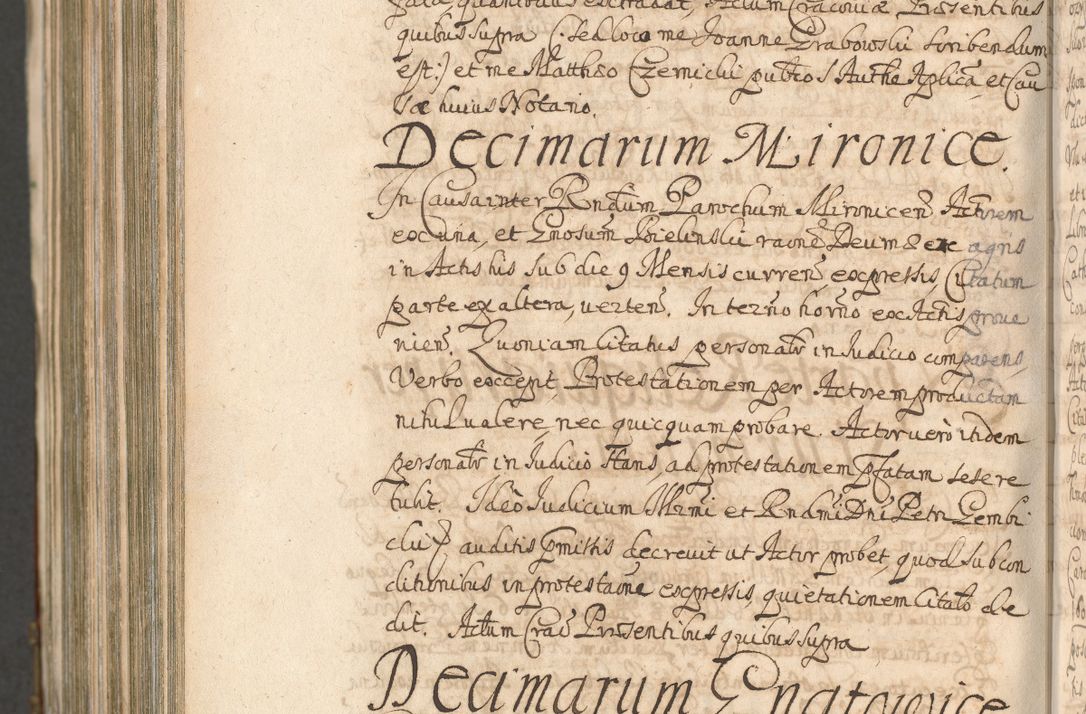 quibus supra (: sed loco me Joanne Grabowski scribendum
est :) et me Matthæo Czernicki pubco S Autke Aplica, et Cau
sæ huius Notario.
Decimarum Mironice.
In Causa inter Rndum Parochum Mironicen Actorem
ex una, et Gnosum Bielinski raone Decimæ ex agris
in Actis his sub die 9 Mensis curren expressis, Citatum
parte ex altera, verten. In termo horno ex Actis prove
nien. Quoniam Citatus personalr in Judicio comparens
Verbo excepit, Protestationem per Actorem productam
nihil valere, nec quicquam probare. Actor vero itidem
personalr in Judicio stans, ad protestationem pfatam se sere
tulit. Ideo Judicium Illrmi et Rndmi Dni Petri Gembi
cki P auditis pmissis decrevit ut Actor probet, quod sub con
ditionibus in protestaone expressis, quietationem Citato de
dit. Actum Crac Præsentibus quibus supra
Decimarum Gnatowice